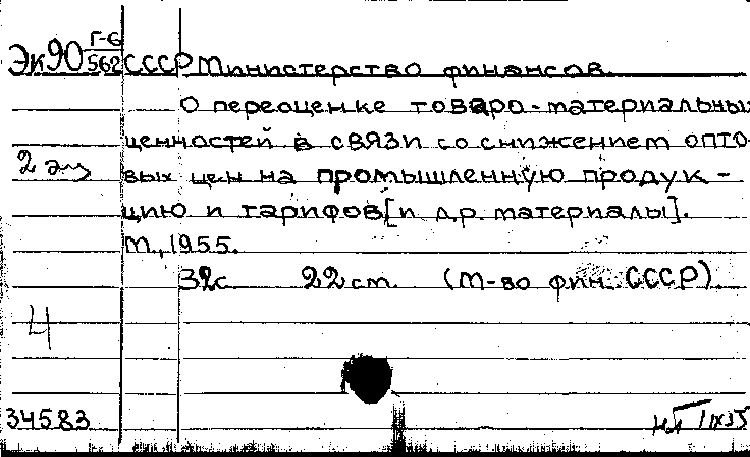 Г-6
Эк90 562 СССР Министерство финансов.
О переоценке товаро-материальных
ценностей в связи со снижением опто-
вых цен на промышленную продук-
цию и тарифов [и др. материалы].
М., 1955.
2 экз
32с. 22 см. (М-во фин. СССР).
4
34583